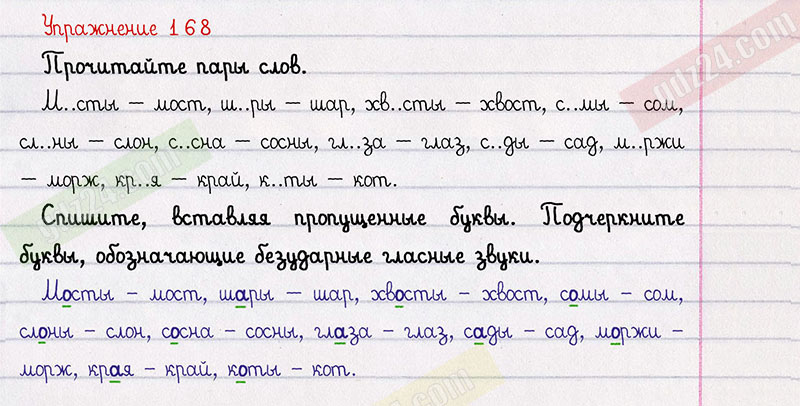 Упражнение 168
Прочитайте пары слов.
М..сты – мост, ш..ры – шар, хв..сты – хвост, с..мы – сом,
сл..ны – слон, с..сна – сосны, гл..за – глаз, с..ды – сад, м..ржи
– морж, кр..я – край, к..ты – кот.
Спишите, вставляя пропущенные буквы. Подчеркните
буквы, обозначающие безударные гласные звуки.
Мосты – мост, шары – шар, хвосты – хвост, сомы – сом,
слоны – слон, сосна – сосны, глаза – глаз, сады – сад, моржи –
морж, края – край, коты – кот.
gdz24.com
gdz24.com
gdz24.com